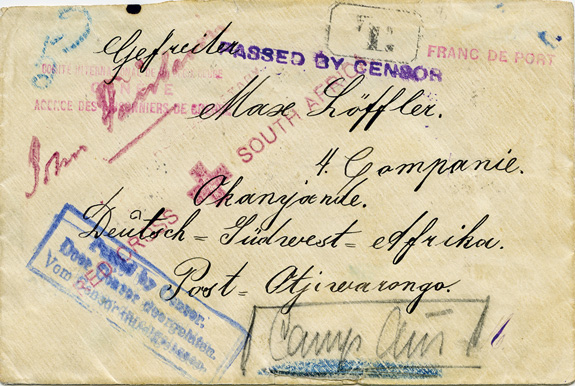 Gefreiter
PASSED BY CENSOR
FRANC DE PORT
COMITÉ INTERNATIONAL DE LA CROIX-ROUGE
GENÈVE
AGENCE DES PRISONNIERS DE GUERRE
Max Löffler.
4. Companie.
Okanjande.
Deutsch=Südwest=Afrika.
Post=Otjiwarongo.
RED CROSS SOUTH AFRICA
Passed by Censor.
Door Censor doorgelaten.
Camp Aus